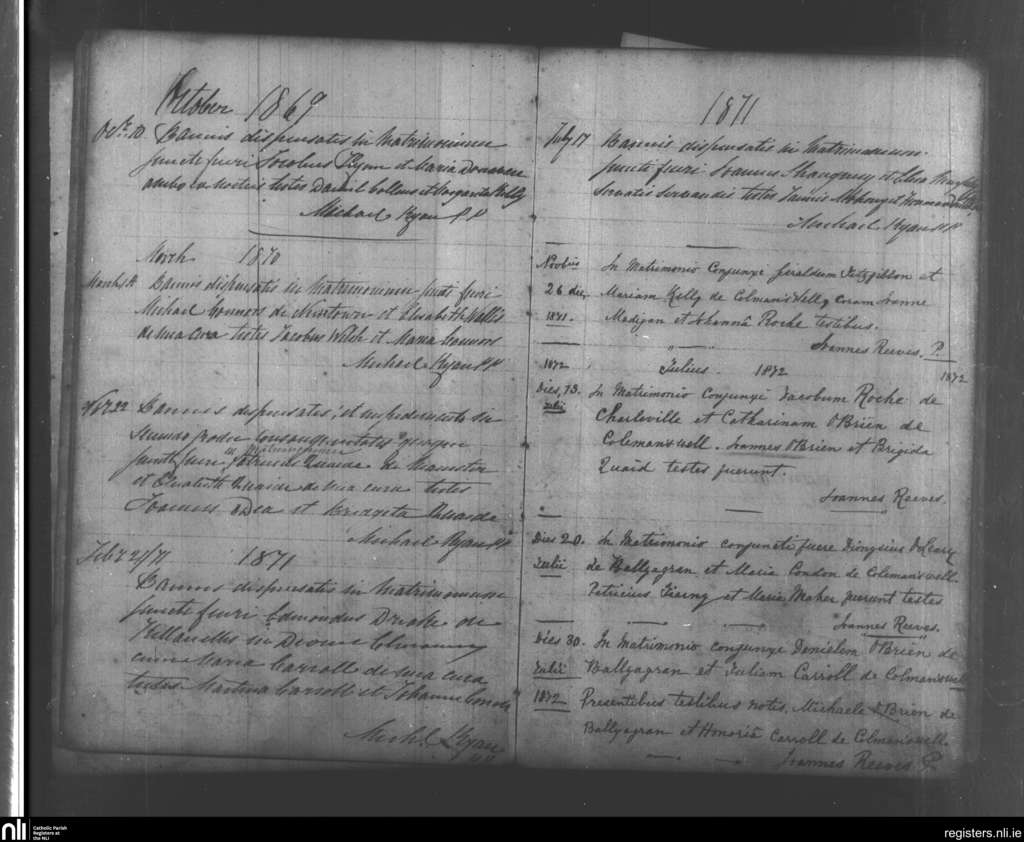 October 1869
Oct 10 Bannis dispensatis in Matrimonium
juncti fueri Jacobus Flynn et Maria
ambo testes Daniel Collins et Margarita Kelly
Michael Ryan PP
March 1870
March Bannis dispensatis in Matrimonium juncti fueri
Michael Connors de Newtown et Elisabeth Wallis
de mea cura testes Jacobus Welsh et Maria Connors
Michael Ryan PP
22 Bannis dispensatis et impedimento in
secundo gradu consanguinitatis
in Matrimonium
juncti fueri Patricius Quaide de
et Elisabeth Quaide de mea cura testes
Joannes O Dea et Brigeta Quaide
Michael Ryan PP
Feb 22/71 1871
Bannis dispensatis in Matrimonium
juncti fueri Edmondus Drake de
in
cum Maria Carroll de mea cura
testes Martino Carroll et Johanna
Michl Ryan
PP
1871
July 17 Bannis dispensatis in Matrimonium
juncti fueri Joannes Shaugnesy et
Servatis Servandis testes
Michael Ryan PP
Novbris In Matrimonio Conjunxi Giraldum Fitzgibbon et
26 die, Mariam Kelly de Colmanswell, coram Joanne
1871. Madigan et Johannâ Roche testibus.
Joannes Reeves. P.
1872 Julius. 1872 1872
Dies, 13. In Matrimonio Conjunxi Jacobum Roche de
Julii Charleville et Catharinam O'Brien de
Colemanswell. Joannes O'Brien et Brigida
Quaid testes fuerunt.
Joannes Reeves.
Dies 20. In Matrimonio conjuncti fuere Dionysius O'Leary
Julii de Ballyagran et Maria Condon de Colemanswell.
Patricius Tierny et Maria Maher fuerunt testes
Joannes Reeves.
Dies 30. In Matrimonio conjunxi Danielem O'Brien de
Julii Ballyagran et Juliam Carroll de Colmanswell
1872 Presentibus testibus notis, Michaele O'Brien de
Ballyagran et Honoriâ Carroll de Colmanswell.
Joannes Reeves P.
nli Catholic Parish
Registers at
the NLI
registers.nli.ie